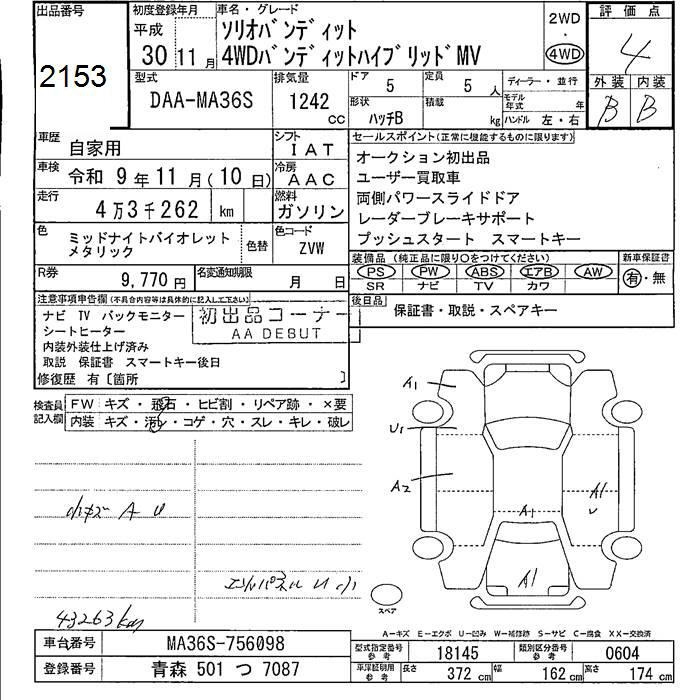 出品番号
2153
初度登録年月
平成
30 11 月
車名・グレード
ソリオバンディット
4WDバンディットハイブリッドMV
2WD
・
4WD
評価点
4
外装 内装
B B
型式
DAA-MA36S
排気量
1242
CC
ドア 5
定員 5 人
形状 ハッチB
積載 kg
ディーラー・並行
モデル年式 年
ハンドル 左・右
車歴
自家用
シフト
IAT
車検
令和 9 年 11 月 ( 10 日)
冷房
AAC
走行
4 万 3 千 262 km
燃料
ガソリン
色
ミッドナイトバイオレット
メタリック
色替
色コード
ZVW
R券
9,770 円
名変通知期限
月 日
セールスポイント(正常に機能するものに限ります)
オークション初出品
ユーザー買取車
両側パワースライドドア
レーダーブレーキサポート
プッシュスタート スマートキー
装備品 (純正品に限り○をつけてください)
PS PW ABS エアB AW
SR ナビ TV カワ
新車保証書
有・無
後日品
保証書・取説・スペアキー
注意事項申告欄(不具合内容等は具体的に記入して下さい)
ナビ TV バックモニター
シートヒーター
内装外装仕上げ済み
取説 保証書 スマートキー後日
修復歴 有〔箇所 〕
初出品コーナー
AA DEBUT
検査員記入欄
FW キズ・飛石・ヒビ割・リペア跡・×要
内装 キズ・汚れ・コゲ・穴・スレ・キレ・破レ
小キズ A U
エンドパネル U 小
43263km
A1
U1
A2
A1
A1
A1
スペア
A-キズ E-エクボ U-凹み W-補修跡 S-サビ C-腐食 XX-交換済
車台番号
MA36S-756098
登録番号
青森 501 つ 7087
型式指定番号
参考
18145
類別区分番号
参考
0604
車庫証明用
参考
長さ 372 cm
幅 162 cm
高さ 174 cm